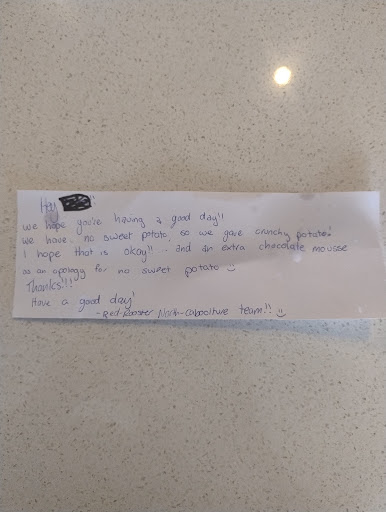 Hey
we hope you're having a good day!!
we have no sweet potato so we gave crunchy potato!
I hope that is okay!! and an extra chocolate mousse
as an apology for no sweet potato
Thanks!!!
Have a good day!
-Red Rooster North-Caboolture team!! :)